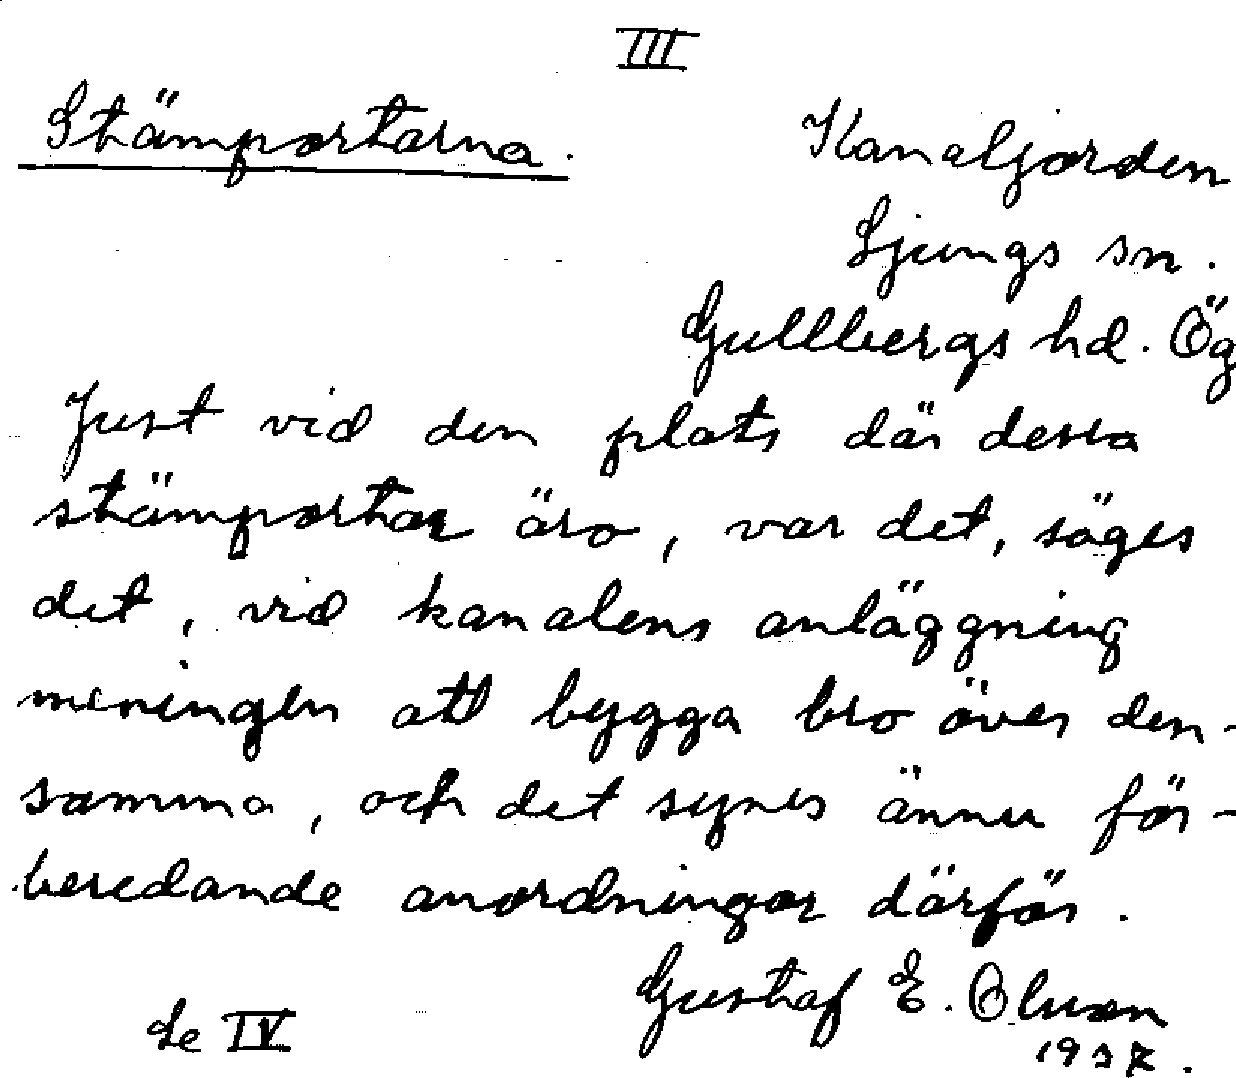 III
Stämportarna.
Kanaljorden
Ljungs sn.
Gullbergs hd. Ög
Just vid den plats där dessa
stämportar äro, var det, säges
det, vid kanalens anläggning
meningen att bygga bro över den-
samma, och det synes ännu för-
beredande anordningar därför.
Gustaf E. Olsson
Se IV
1937.